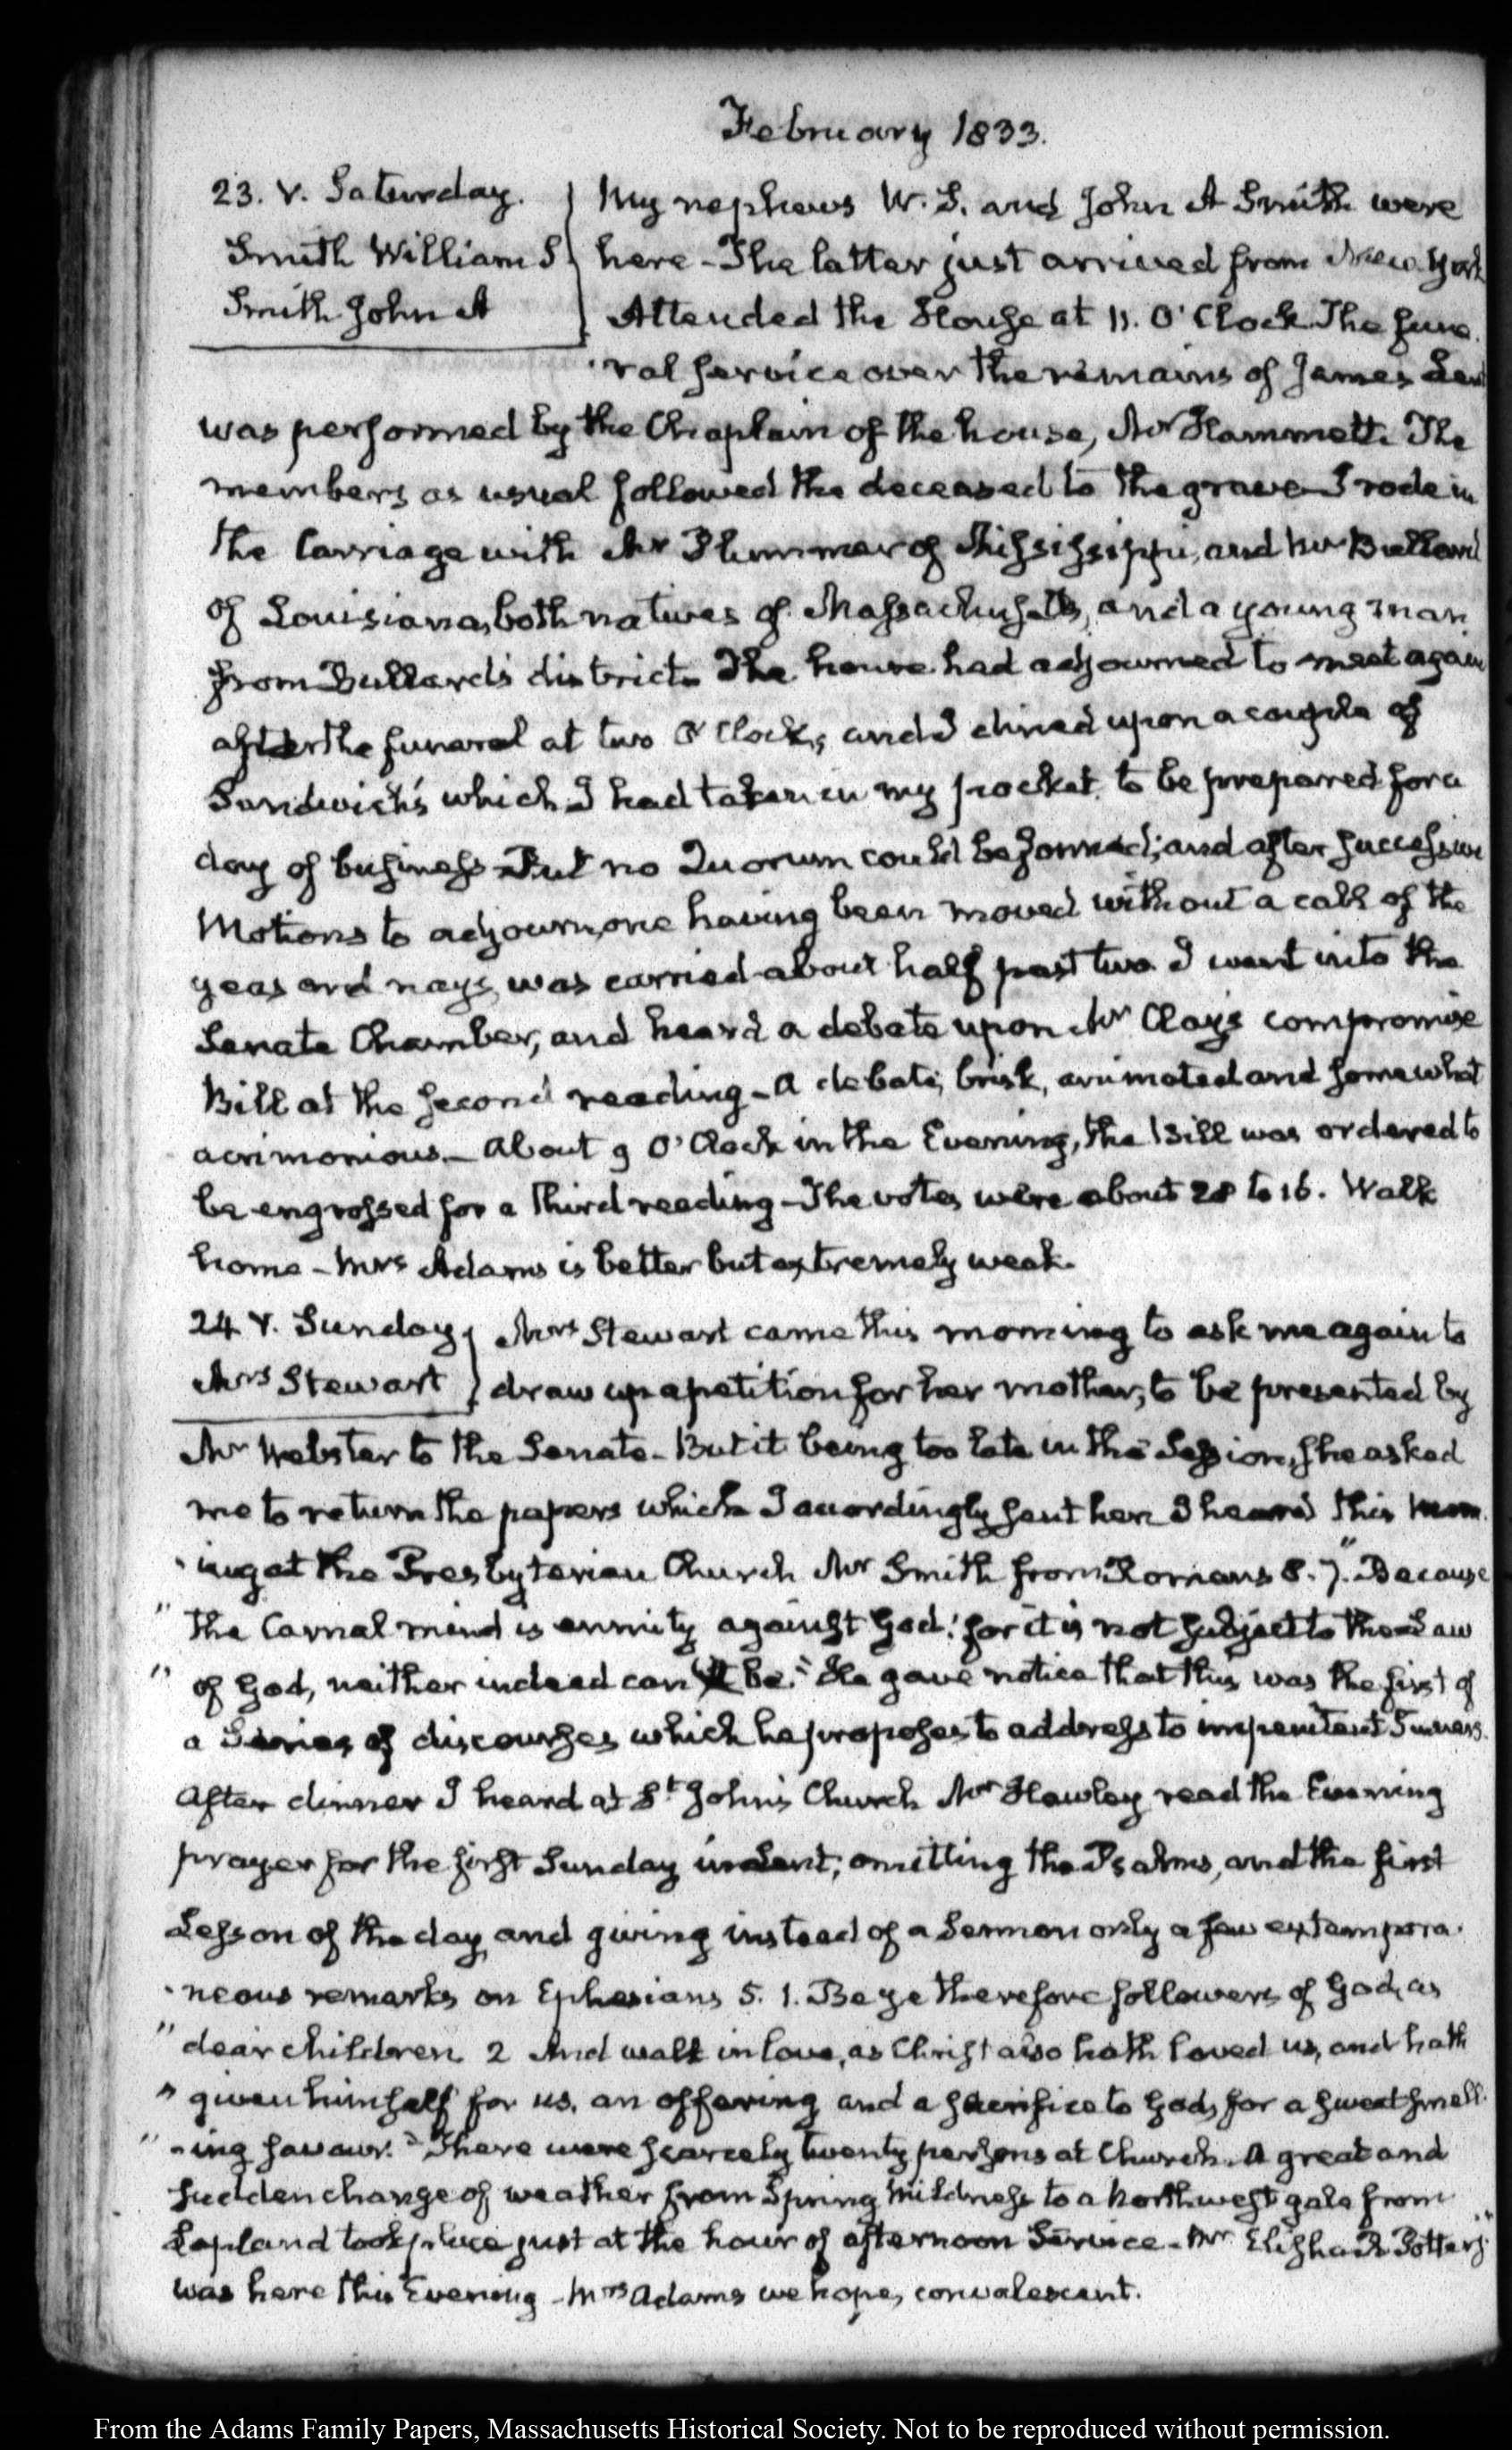 February 1833.
23. V. Saturday.
Smith William S
Smith John A
My nephews W. S. and John A Smith were
here - The latter just arrived from New York
Attended the House at 11. O'Clock. The fune
ral service over the remains of James Lent
was performed by the Chaplain of the house, Mr Hammett. The
members as usual followed the deceased to the grave - I rode in
the Carriage with Mr Plummer of Mississippi, and Mr Bullard
of Louisiana, both natives of Massachusetts, and a young man
from Bullard's district. The house had adjourned to meet again
after the funeral at two O'Clock, and I dined upon a couple of
Sandwich's which I had taken in my pocket to be prepared for a
day of business - But no Quorum could be formed; and after successive
Motions to adjourn, one having been moved without a call of the
yeas and nays, was carried about half past two. I went into the
Senate Chamber, and heard a debate upon Mr Clay's compromise
Bill at the second reading - A debate, brisk, animated and somewhat
acrimonious. - About 9 O'Clock in the Evening, the Bill was ordered to
be engrossed for a third reading - The votes were about 28 to 16. Walk
home - Mrs Adams is better but extremely weak.
24. V. Sunday
Mrs Stewart
Mrs Stewart came this morning to ask me again to
draw up a petition for her mother, to be presented by
Mr Webster to the Senate - But it being too late in the Session, she asked
me to return the papers which I accordingly sent her. I heard this morn
ing at the Presbyterian Church Mr Smith from Romans 8. 7. "Because
"the Carnal mind is enmity against God: for it is not subject to the Law
"of God, neither indeed can be." He gave notice that this was the first of
a Series of discourses which he proposes to address to impenitent Sinners.
After dinner I heard at St. John's Church Mr Hawley read the Evening
prayer for the first Sunday in Lent; omitting the Psalms, and the first
Lesson of the day, and giving instead of a Sermon only a few extempora
neous remarks on Ephesians 5. 1. Be ye therefore followers of God, as
"dear children. 2 And walk in love, as Christ also hath loved us, and hath
"given himself for us, an offering and a sacrifice to God, for a sweet smell
"ing savour." There were scarcely twenty persons at Church. A great and
sudden change of weather from Spring mildness to a Northwest gale from
Lapland took place just at the hour of afternoon Service - Mr Elisha R Potter
was here this Evening - Mrs Adams we hope, convalescent.
From the Adams Family Papers, Massachusetts Historical Society. Not to be reproduced without permission.